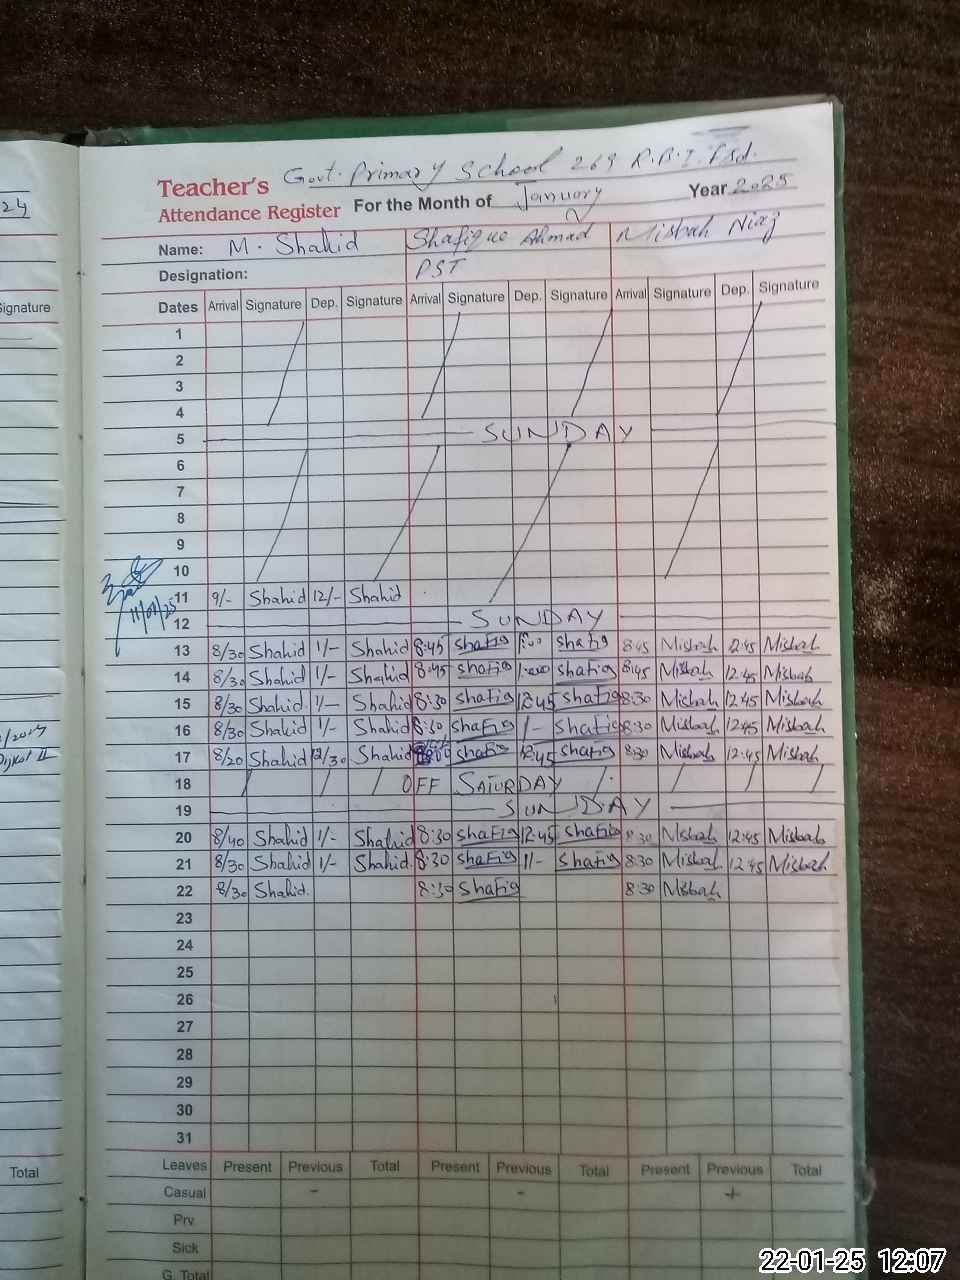 24
Signature
Total
Govt. Primary School 269 R.B.I. Fsd.
Teacher's
Attendance Register For the Month of January Year 2025
Name: M. Shahid Shafique Ahmad Misbah Niaz
Designation: PST
Dates Arrival Signature Dep. Signature Arrival Signature Dep. Signature Arrival Signature Dep. Signature
1
2
3
4
5 SUNDAY
6
7
8
9
10
11 9/- Shahid 12/- Shahid
11/01/25
12 SUNDAY
13 8/30 Shahid 1/- Shahid 8:45 Shafiq 1:00 Shafiq 8:45 Misbah 12:45 Misbah
14 8/30 Shahid 1/- Shahid 8:45 Shafiq 1:00 Shafiq 8:45 Misbah 12:45 Misbah
15 8/30 Shahid 1/- Shahid 8:30 Shafiq 12:45 Shafiq 8:30 Misbah 12:45 Misbah
16 8/30 Shahid 1/- Shahid 8:30 Shafiq 1/- Shafiq 8:30 Misbah 12:45 Misbah
17 8/20 Shahid 12/30 Shahid Shafiq 12:45 Shafiq 8:30 Misbah 12:45 Misbah
18 OFF SATURDAY
19 SUNDAY
20 8/40 Shahid 1/- Shahid 8:30 Shafiq 12:45 Shafiq 8:30 Misbah 12:45 Misbah
21 8/30 Shahid 1/- Shahid 8:30 Shafiq 1/- Shafiq 8:30 Misbah 12:45 Misbah
22 8/30 Shahid. 8:30 Shafiq 8:30 Misbah
23
24
25
26
27
28
29
30
31
Leaves Present Previous Total Present Previous Total Present Previous Total
Casual - - +
Prv.
Sick
G. Total
22-01-25 12:07